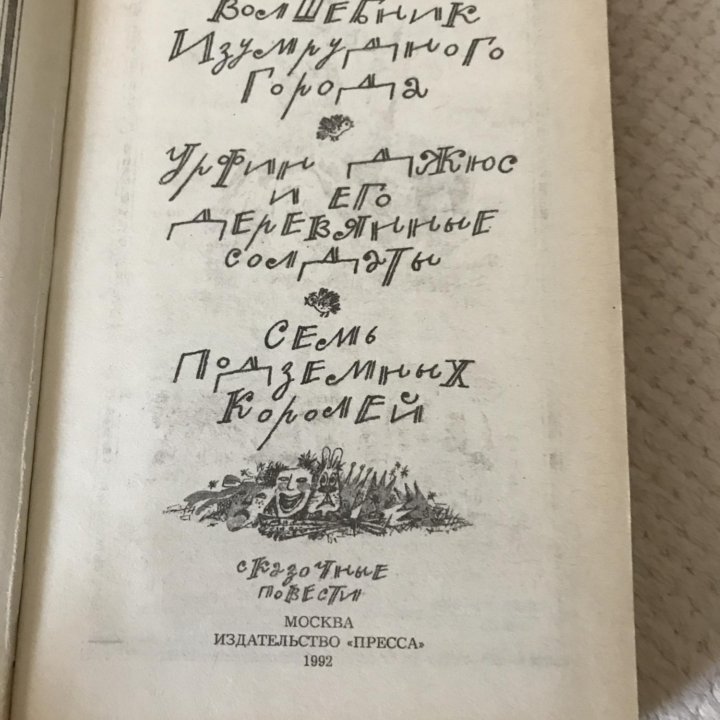 Волшебник
Изумрудного
Города
Урфин Джюс
и его
деревянные
солдаты
Семь
Подземных
Королей
сказочные
повести
МОСКВА
ИЗДАТЕЛЬСТВО «ПРЕССА»
1992